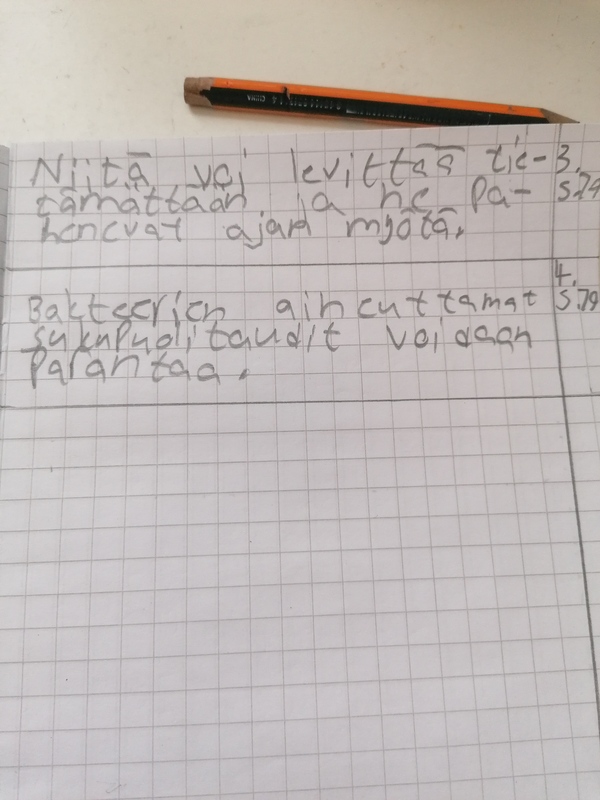 Niitä voi levittää tie- 3.
tämättään ja ne pa- s.79
henevat ajan myötä.
4.
Bakteerien aiheuttamat s.79
sukupuolitaudit voidaan
parantaa.